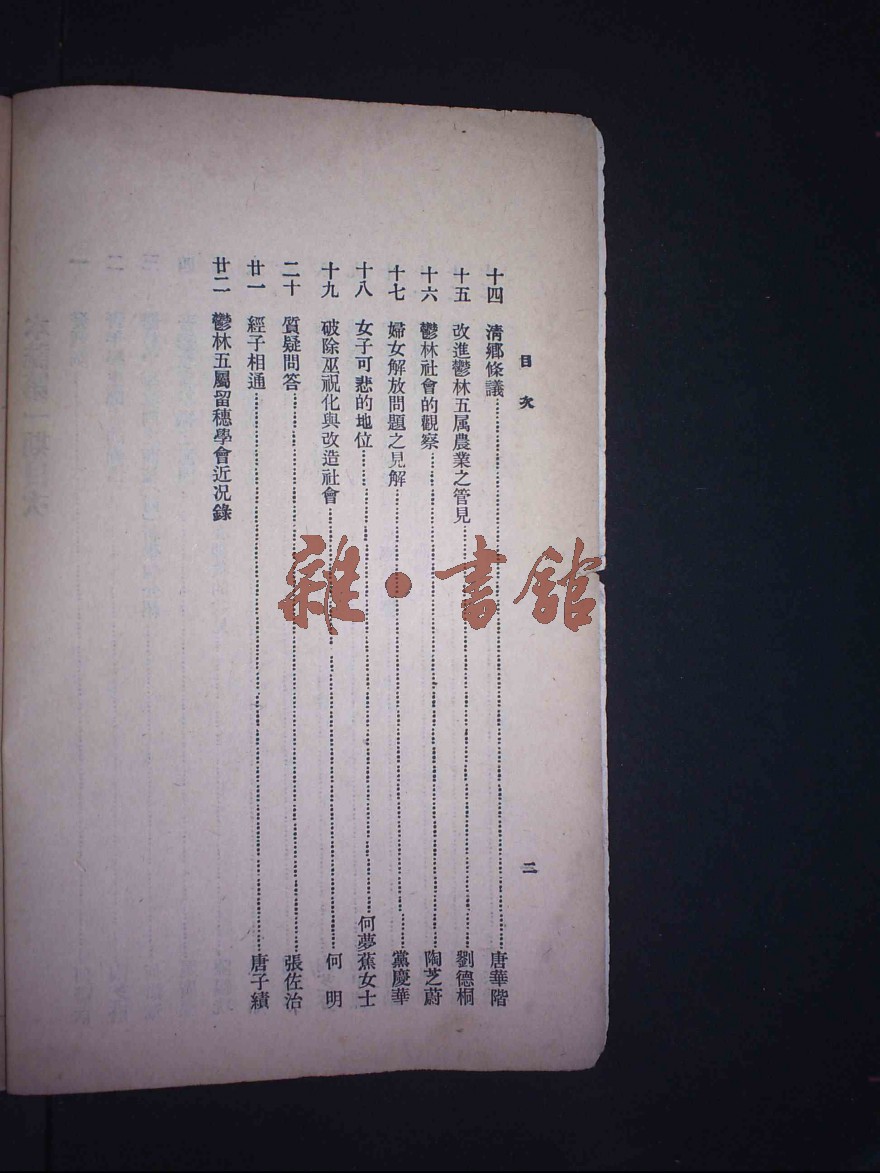 目次
二
十四 清鄉條議……唐華階
十五 改進鬱林五属農業之管見……劉德桐
十六 鬱林社會的觀察……陶芝蔚
十七 婦女解放問題之見解……黨慶華
十八 女子可悲的地位……何夢蕉女士
十九 破除巫祝化與改造社會……何 明
二十 質疑問答……張佐治
廿一 經子相通……唐子績
廿二 鬱林五屬留穗學會近况錄
雜·書館